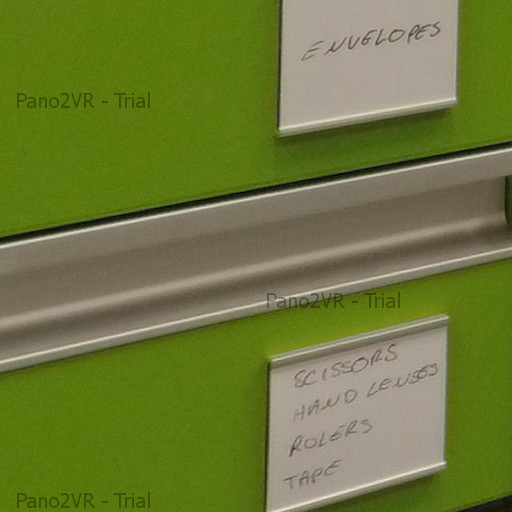 ENVELOPES
Pano2VR - Trial
Pano2VR - Trial
SCISSORS
HAND LENSES
ROLERS
TAPE
Pano2VR - Trial